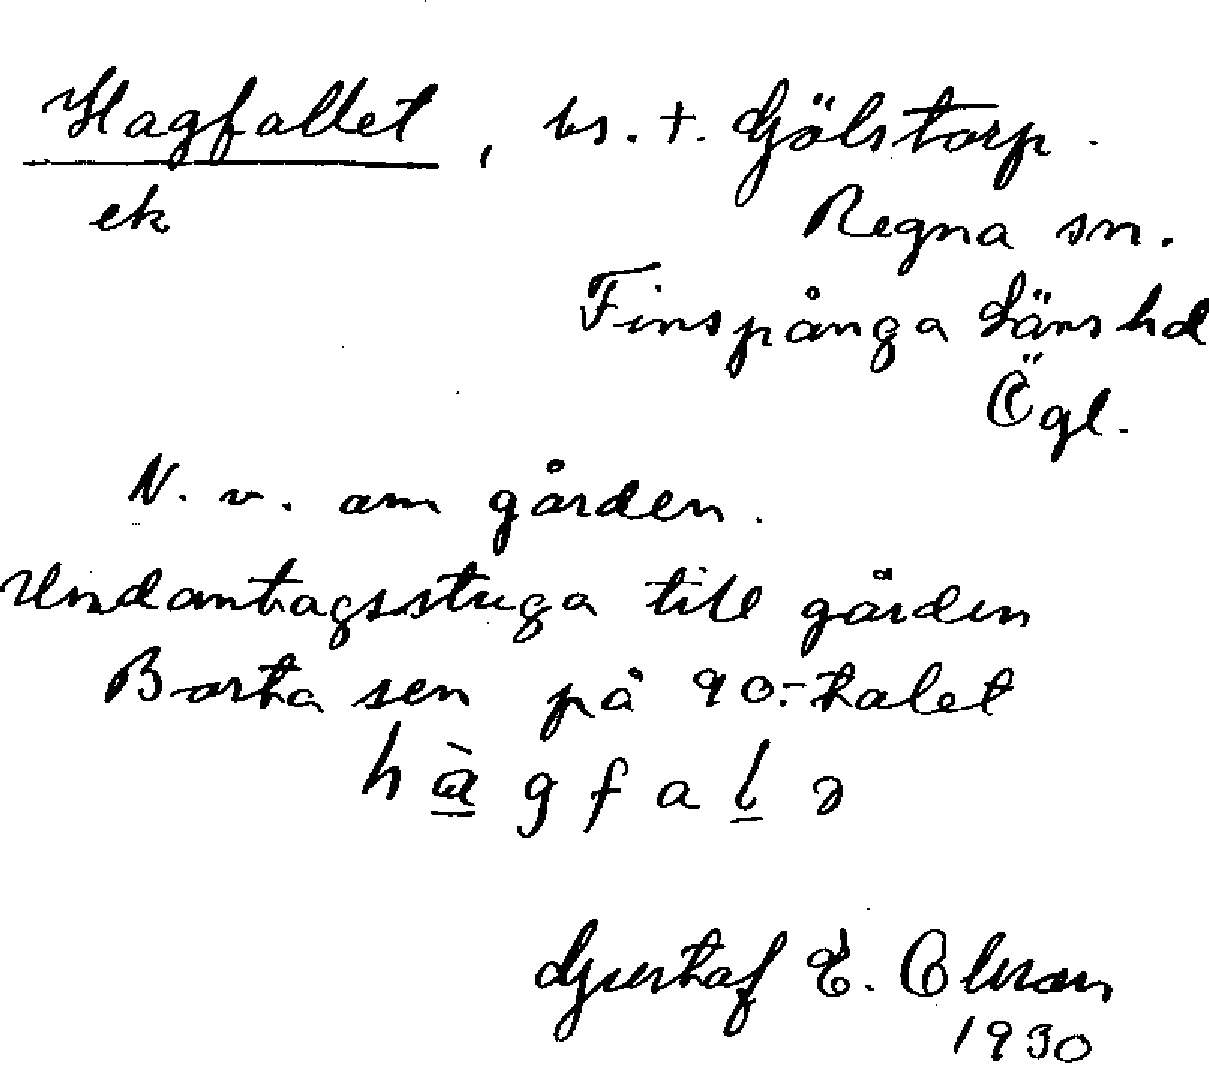 Hagfallet, bs. t. Gölstorp.
ek
Regna sn.
Finspånga Länshd
Ögl.
N. v. om gården.
Undantagsstuga till gården
Borta sen på 90.-talet
hàgfalə
Gustaf E. Olsson
1930